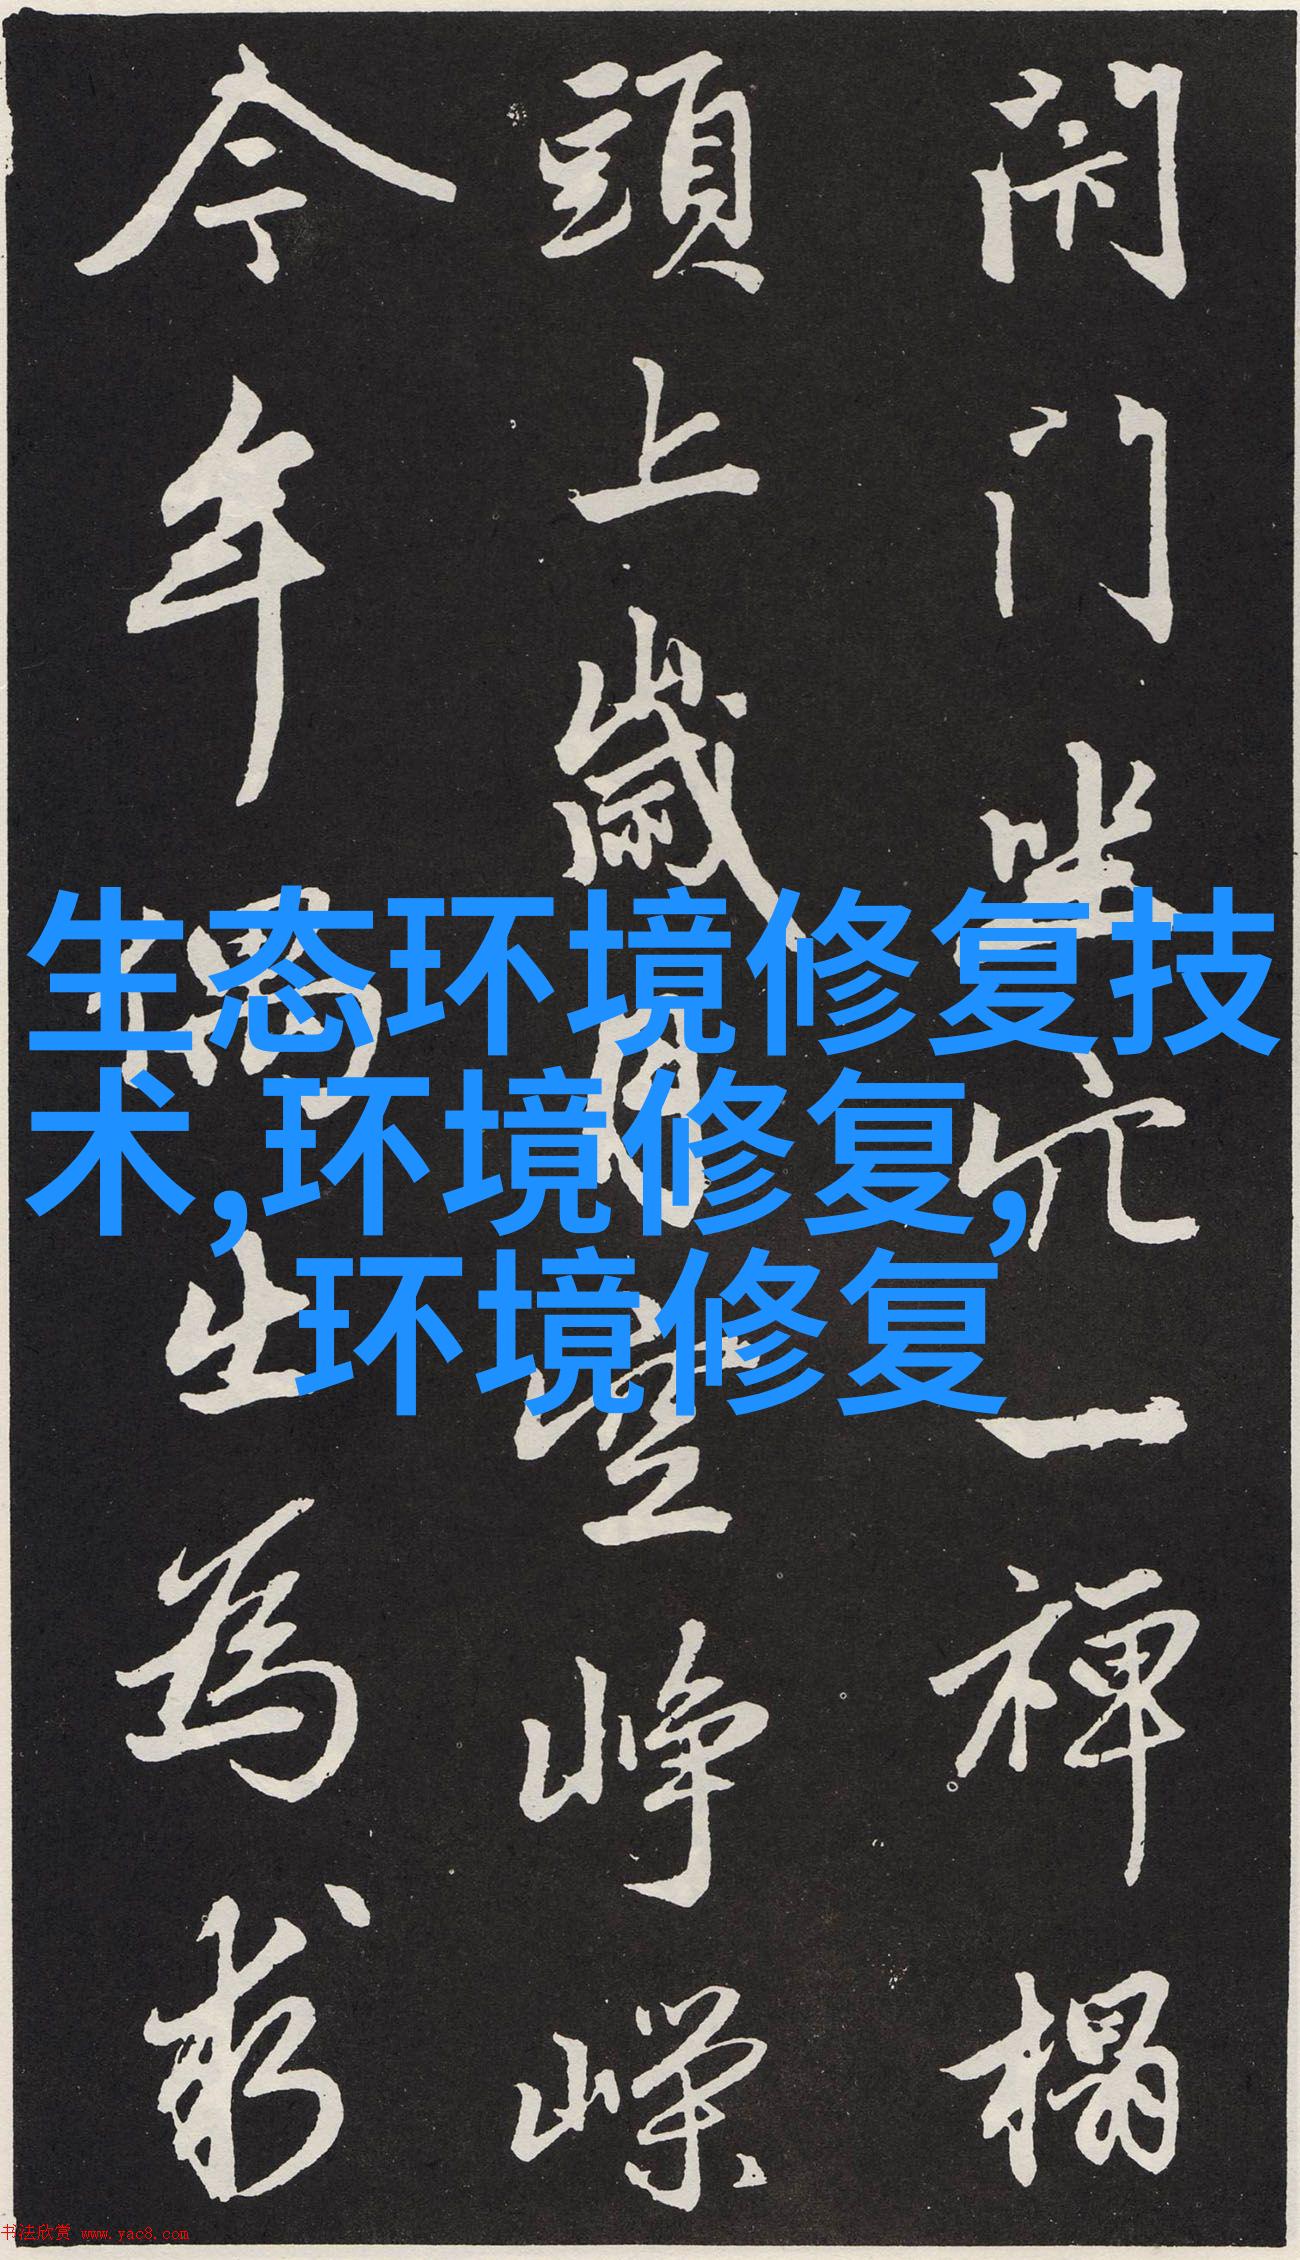 闭门坐穴一禅榻
頭上歲月空峥嵘
今年偶出為求
生态环境修复技
术,环境修复,
环境修复
书法欣赏 www.yac8.com